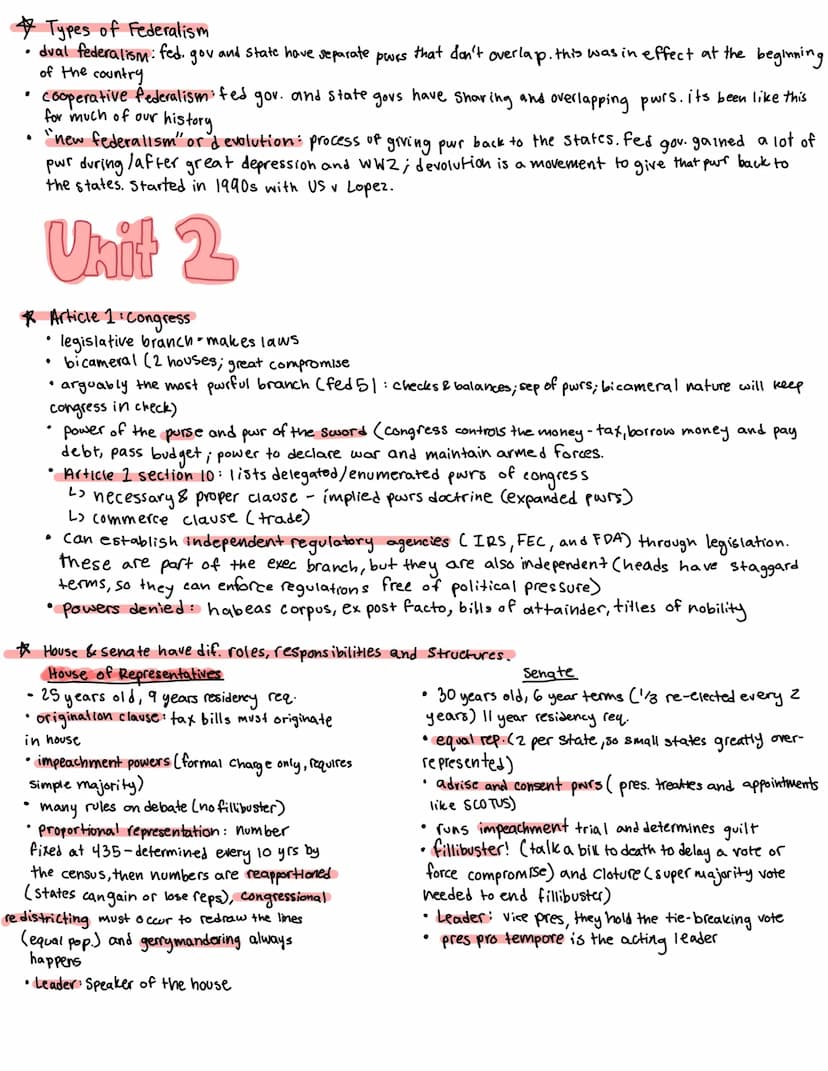 ☆ Types of Federalism
• dual federalism: fed. gov and state have separate pwrs that don't overlap. this was in effect at the beginning
of the country
• cooperative federalism: fed gov. and state govs have sharing and overlapping pwrs. its been like this
for much of our history
• "new federalism" or devolution: process of giving pwr back to the states. Fed gov. gained a lot of
pwr during/after great depression and WW2; devolution is a movement to give that pwr back to
the states. Started in 1990s with US v Lopez.
Unit 2
☆ Article 1: Congress
• legislative branch - makes laws
• bicameral (2 houses; great compromise
• arguably the most pwrful branch (fed 51: checks & balances; sep of pwrs; bicameral nature will keep
congress in check)
• power of the purse and pwr of the sword (congress controls the money - tax, borrow money and pay
debt, pass budget; power to declare war and maintain armed forces.
• Article 1 section 10: lists delegated/enumerated pwrs of congress
↳ necessary & proper clause - implied pwrs doctrine (expanded pwrs)
↳ commerce clause (trade)
• can establish independent regulatory agencies (IRS, FEC, and FDA) through legislation.
these are part of the exec branch, but they are also independent (heads have staggard
terms, so they can enforce regulations free of political pressure)
• powers denied: habeas corpus, ex post facto, bills of attainder, titles of nobility
☆ House & senate have dif. roles, responsibilities and structures.
House of Representatives
- 25 years old, 9 years residency req.
• origination clause: tax bills must originate
in house
• impeachment powers (formal charge only, requires
simple majority)
• many rules on debate (no fillibuster)
• proportional representation: number
fixed at 435 - determined every 10 yrs by
the census, then numbers are reapportioned
(states can gain or lose reps), congressional
redistricting must occur to redraw the lines
(equal pop.) and gerrymandering always
happens
• Leader: Speaker of the house
Senate
• 30 years old, 6 year terms (1/3 re-elected every 2
years) 11 year residency req.
• equal rep. (2 per state, so small states greatly over-
represented)
• advise and consent pwrs (pres. treaties and appointments
like SCOTUS)
• runs impeachment trial and determines guilt
• fillibuster! (talk a bill to death to delay a vote or
force compromise) and cloture (super majority vote
needed to end fillibuster)
• Leader: vice pres, they hold the tie-breaking vote
• pres pro tempore is the acting leader